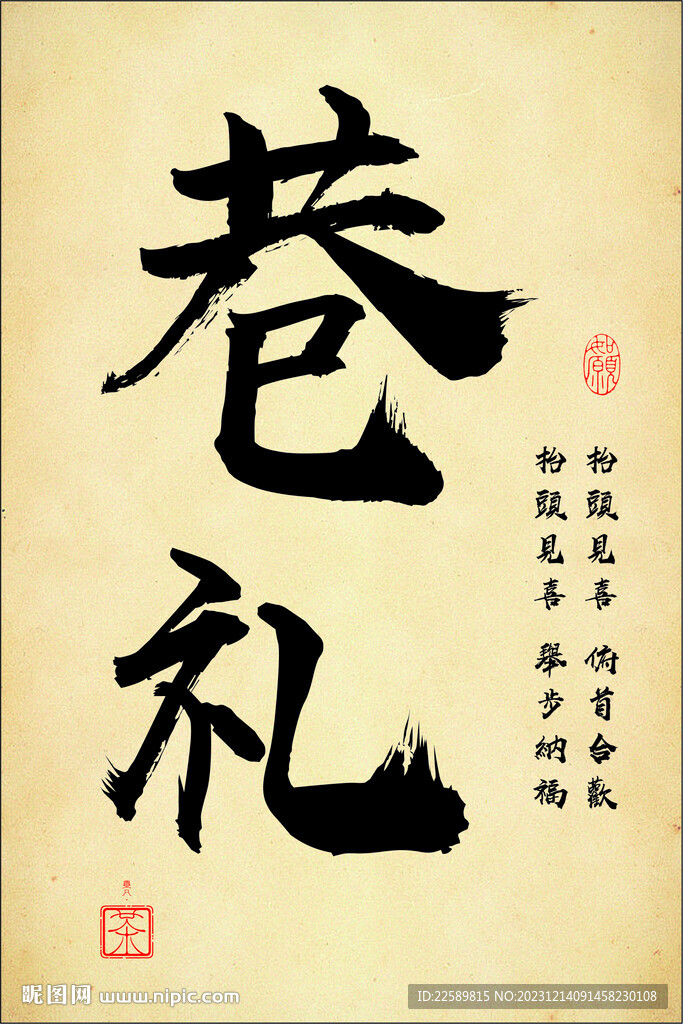 巷礼
如願
抬頭見喜 俯首合歡
抬頭見喜 舉步納福
茶
昵图网 www.nipic.com
ID:22589815 NO:20231214091458230108